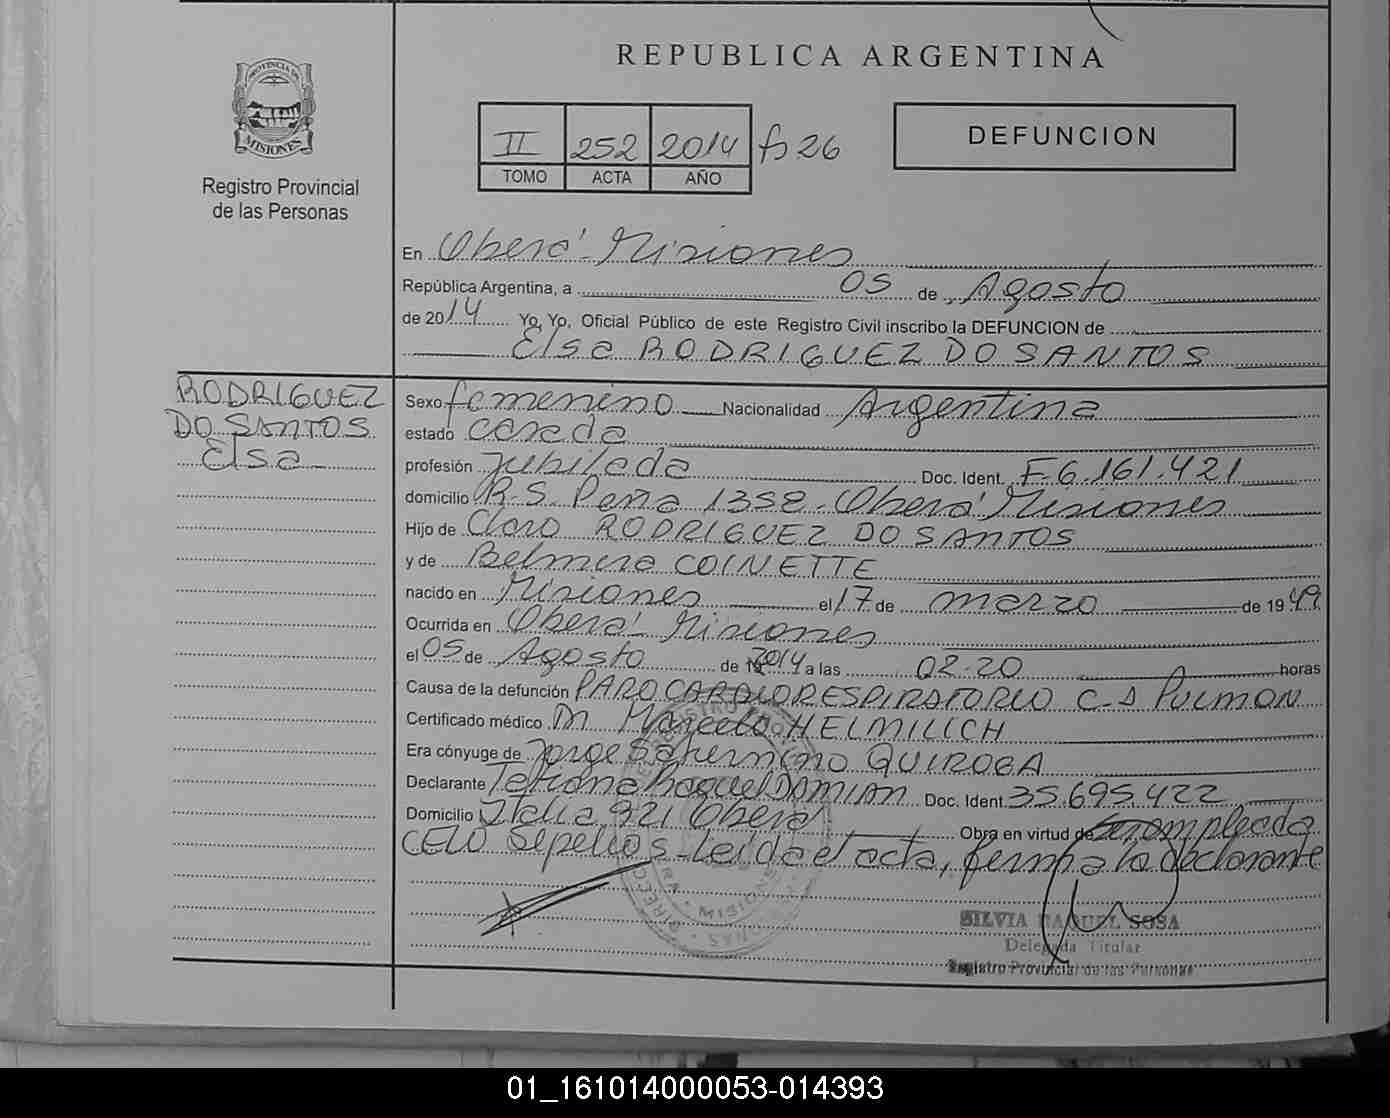 REPUBLICA ARGENTINA
PROVINCIA DE
MISIONES
Registro Provincial
de las Personas
II 252 2014 fs 26
TOMO ACTA AÑO
DEFUNCION
En Oberá - Misiones
República Argentina, a 05 de Agosto
de 2014 Yo, Yo, Oficial Público de este Registro Civil inscribo la DEFUNCION de
Elsa RODRIGUEZ DO SANTOS
RODRIGUEZ
DO SANTOS
Elsa
Sexo femenino Nacionalidad Argentina
estado casada
profesión Jubilada Doc. Ident. F.6.161.421
domicilio R.S. Peña 1358 - Oberá Misiones
Hijo de Claro RODRIGUEZ DO SANTOS
y de Belmira COINETTE
nacido en Misiones el 17 de marzo de 1949
Ocurrida en Oberá - Misiones
el 05 de Agosto de 2014 a las 02.20 horas
Causa de la defunción PARO CARDIORESPIRATORIO C-A PULMON
Certificado médico Dr. Marcelo HELMILICH
Era cónyuge de Jorge Saturnino QUIROGA
Declarante Tatiana Raquel DAMIAN Doc. Ident. 35.695.422
Domicilio Italia 921 Oberá Obra en virtud de ser empleada
CELO Sepelios - Leida el acta, firma la declarante
MISIONES
SILVIA RAQUEL SOSA
Delegada Titular
Registro Provincial de las Personas
01_161014000053-014393